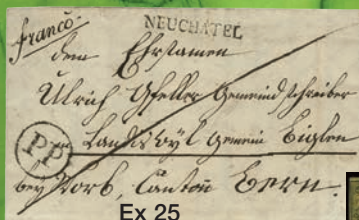 Franco.
NEUCHATEL
dem Ehrsamen
Ulrich Gfeller Gemeindschreiber
PP
Landiswyl Gemein Biglen
bey Worb, Canton Bern.
Ex 25